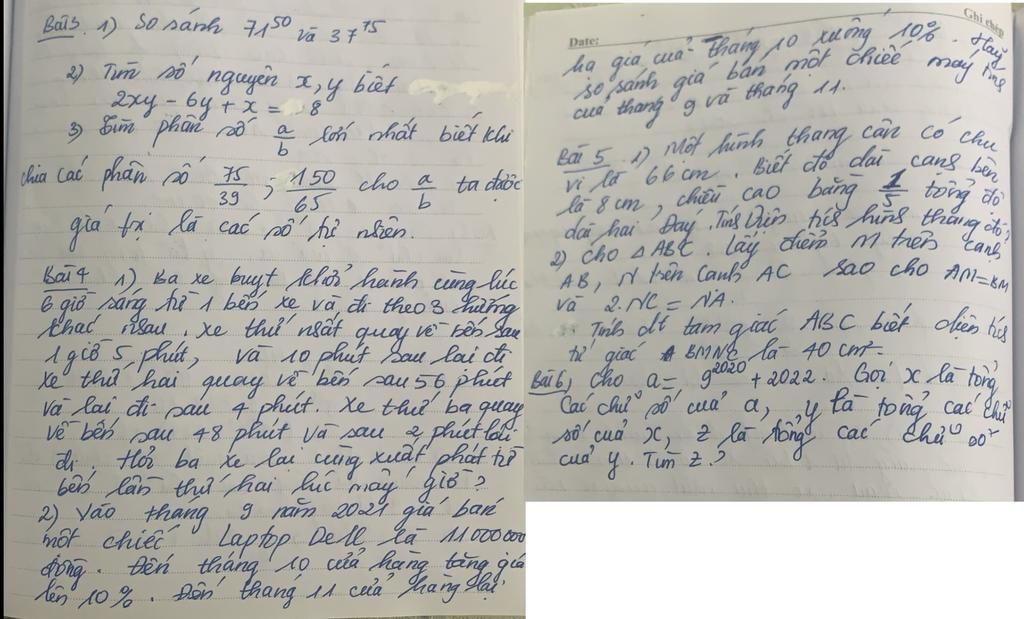 Bài 3. 1) So sánh 71^50 và 37^75
2) Tìm số nguyên x, y biết
2xy - 6y + x = 8
3) Tìm phân số a/b lớn nhất biết khi
chia các phân số 75/39 ; 150/65 cho a/b ta được
giá trị là các số tự nhiên.
Bài 4 1) Ba xe buyt khởi hành cùng lúc
6 giờ sáng từ 1 bến xe và đi theo 3 hướng
khác nhau. Xe thứ nhất quay về bến sau
1 giờ 5 phút, và 10 phút sau lại đi
xe thứ hai quay về bến sau 56 phút
và lại đi sau 4 phút. Xe thứ ba quay
về bến sau 48 phút và sau 2 phút lại
đi. Hỏi ba xe lại cùng xuất phát từ
bến lần thứ hai lúc mấy giờ?
2) Vào tháng 9 năm 2021 giá bán
một chiếc Laptop Dell là 11000000
đồng. Đến tháng 10 cửa hàng tăng giá
lên 10%. Đến tháng 11 cửa hàng lại
Date: Ghi chép
hạ giá của tháng 10 xuống 10%. Hãy
so sánh giá bán một chiếc máy tính
của tháng 9 và tháng 11.
Bài 5. 1) Một hình thang cân có chu
vi là 66cm. Biết độ dài cạnh bên
là 8cm, chiều cao bằng 1/5 tổng độ
dài hai Đáy. Tính Diện tích hình thang đó.
2) Cho △ABC. Lấy điểm M trên cạnh
AB, N trên cạnh AC sao cho AM=BM
và 2.NC = NA.
Tính dt tam giác ABC biết diện tích
tứ giác BMNC là 40 cm².
Bài 6, Cho a = 9^2020 + 2022. Gọi x là tổng
các chữ số của a, y là tổng các chữ
số của x, z là tổng các chữ số
của y. Tìm z?